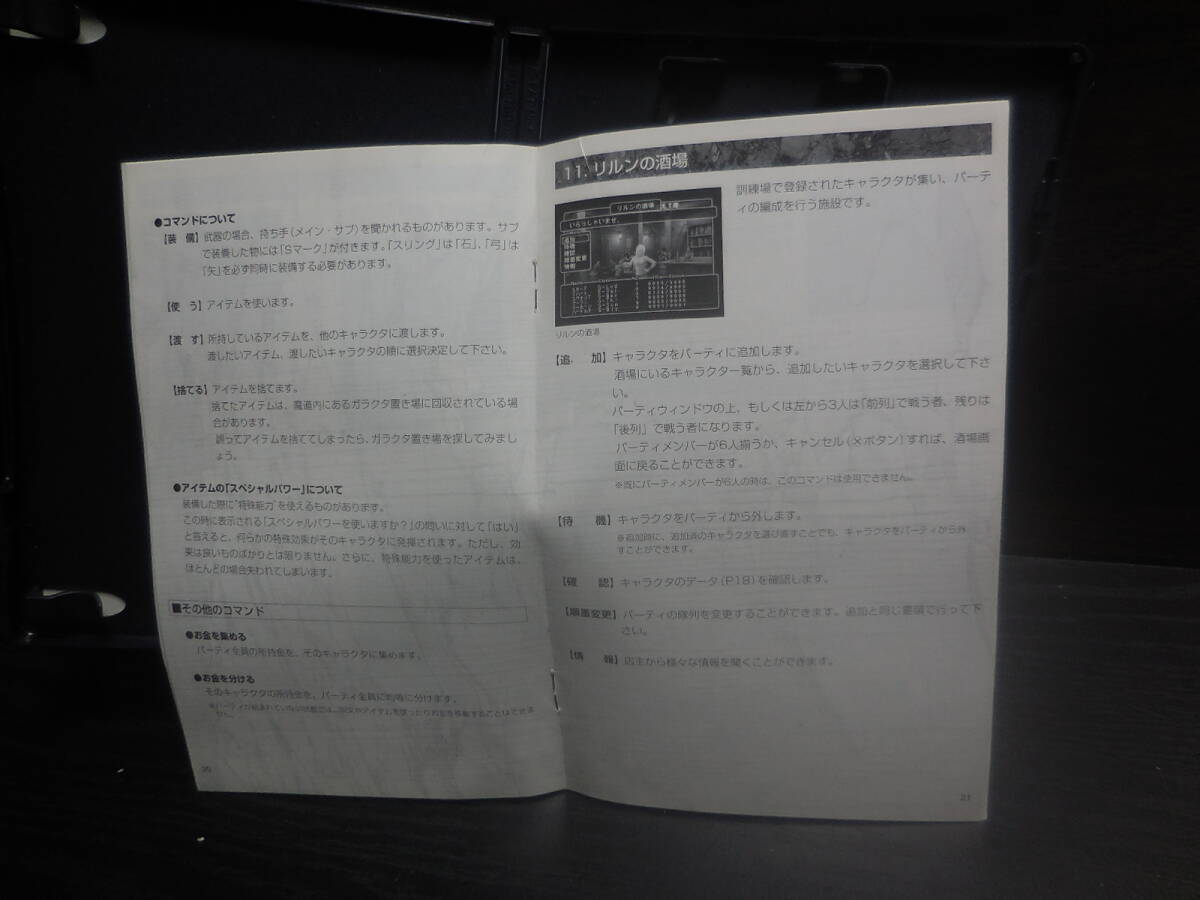 ●コマンドについて
【装　備】武器の場合、持ち手(メイン・サブ)を聞かれるものがあります。サブ
で装備した物には「Sマーク」が付きます。「スリング」は「石」、「弓」は
「矢」を必ず同時に装備する必要があります。
【使　う】アイテムを使います。
【渡　す】所持しているアイテムを、他のキャラクタに渡します。
渡したいアイテム、渡したいキャラクタの順に選択決定して下さい。
【捨てる】アイテムを捨てます。
捨てたアイテムは、魔道内にあるガラクタ置き場に回収されている場
合があります。
誤ってアイテムを捨ててしまったら、ガラクタ置き場を探してみまし
ょう。
●アイテムの「スペシャルパワー」について
装備した際に"特殊能力"を使えるものがあります。
この時に表示される「スペシャルパワーを使いますか?」の問いに対して「はい」
と答えると、何らかの特殊効果がそのキャラクタに発揮されます。ただし、効
果は良いものばかりとは限りません。さらに、特殊能力を使ったアイテムは、
ほとんどの場合失われてしまいます。
■その他のコマンド
●お金を集める
パーティ全員の所持金を、そのキャラクタに集めます。
●お金を分ける
そのキャラクタの所持金を、パーティ全員に均等に分けます。
20
11. リルンの酒場
訓練場で登録されたキャラクタが集い、パーテ
ィの編成を行う施設です。
リルンの酒場
いらっしゃいませ。
追加
待機
確認
順番変更
情報
リルンの酒場
【追　加】キャラクタをパーティに追加します。
酒場にいるキャラクター覧から、追加したいキャラクタを選択して下さ
い。
パーティウィンドウの上、もしくは左から3人は「前列」で戦う者、残りは
「後列」で戦う者になります。
パーティメンバーが6人揃うか、キャンセル(×ボタン)すれば、酒場画
面に戻ることができます。
※既にパーティメンバーが6人の時は、このコマンドは使用できません。
【待　機】キャラクタをパーティから外します。
※追加時に、追加済のキャラクタを選び直すことでも、キャラクタをパーティから外
すことができます。
【確　認】キャラクタのデータ(P18)を確認します。
【順番変更】パーティの隊列を変更することができます。追加と同じ要領で行って下
さい。
【情　報】店主から様々な情報を聞くことができます。
21